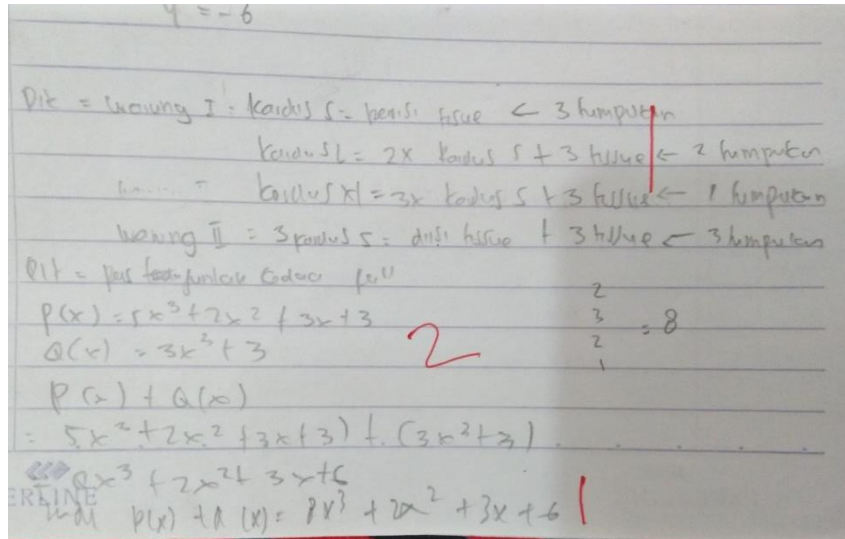 y = -6
Dit = Warung I = Kardus S = berisi tissue ← 3 tumpukan
Kardus L = 2x Kardus S + 3 tissue ← 2 tumpukan
= Kardus Xl = 3x Kardus S + 3 tissue ← 1 tumpukan
Warung II = 3 kardus S = diisi tissue + 3 tissue ← 3 tumpukan
Dit =
P(x) = 5x³ + 2x² + 3x + 3
Q(x) = 3x³ + 3
2
2
3
2
1
= 8
P(x) + Q(x)
= 5x² + 2x² + 3x + 3) + (3x² + 3)
8x³ + 2x² + 3x + 6
ERLINE
P(x) + Q(x) = 8x³ + 2x² + 3x + 6
1